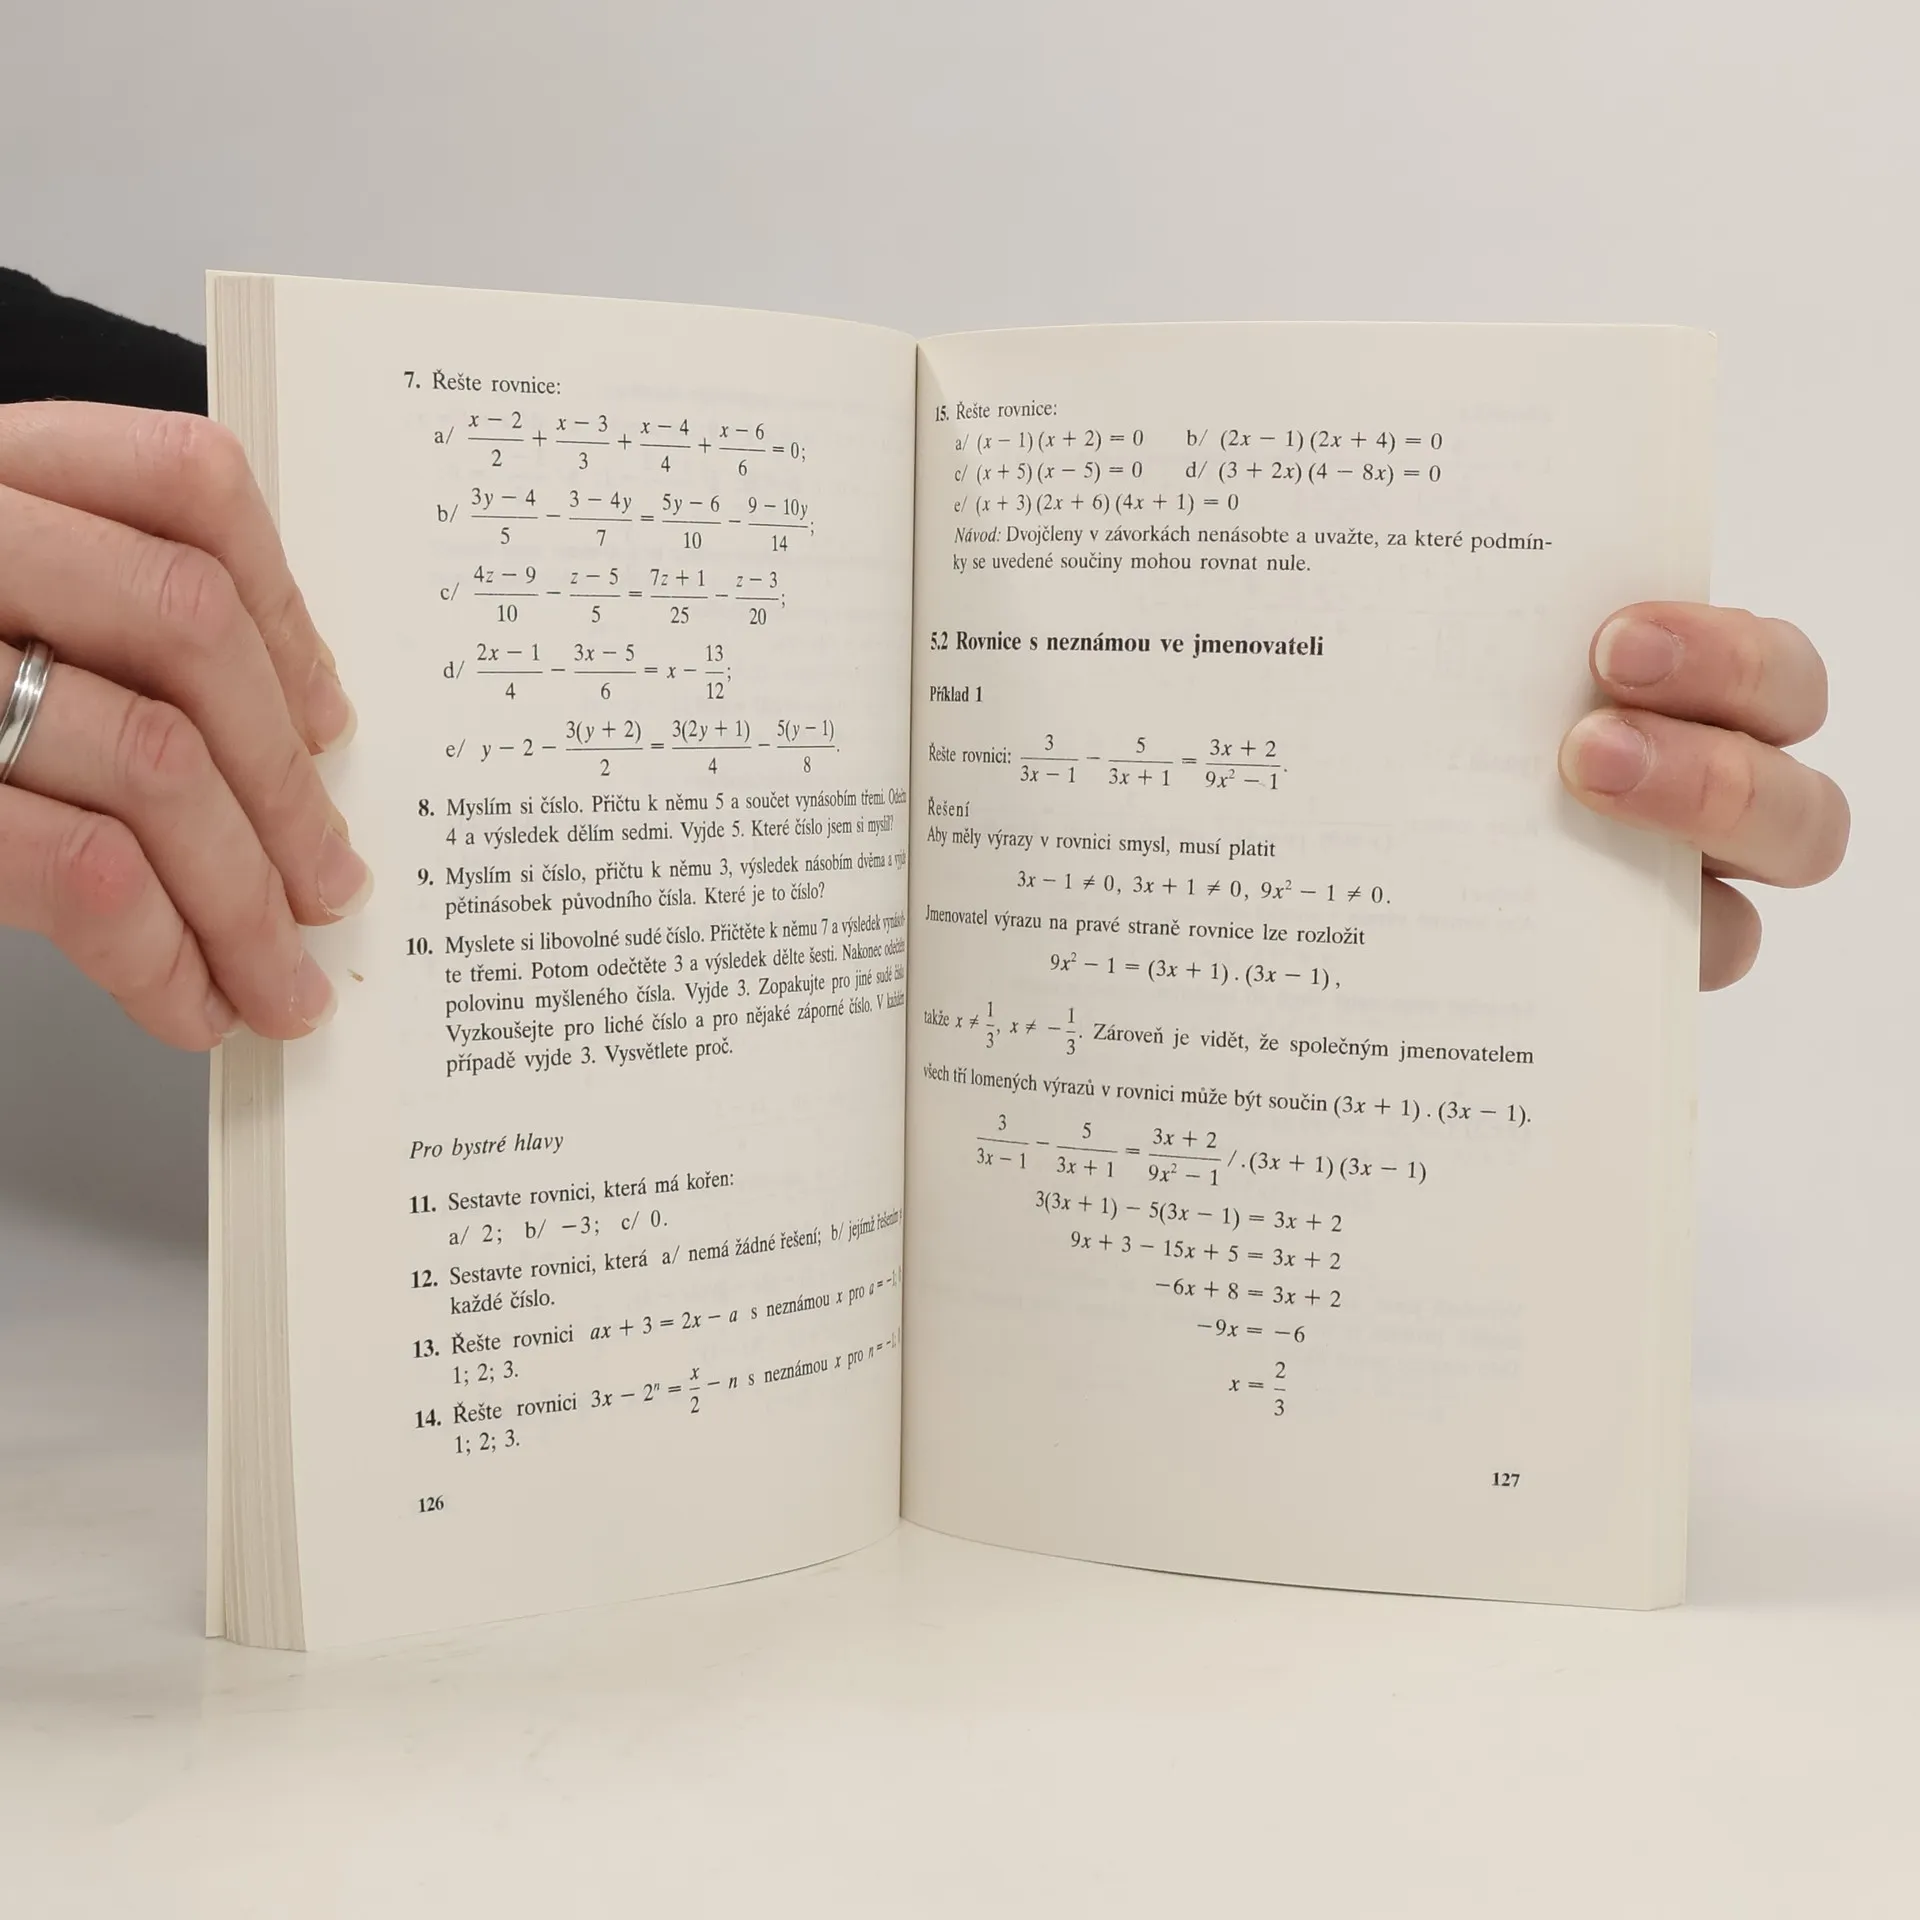 7. Řešte rovnice:
a/ (x − 2)/2 + (x − 3)/3 + (x − 4)/4 + (x − 6)/6 = 0;
b/ (3y − 4)/5 − (3 − 4y)/7 = (5y − 6)/10 − (9 − 10y)/14;
c/ (4z − 9)/10 − (z − 5)/5 = (7z + 1)/25 − (z − 3)/20;
d/ (2x − 1)/4 − (3x − 5)/6 = x − 13/12;
e/ y − 2 − 3(y + 2)/2 = 3(2y + 1)/4 − 5(y − 1)/8.
8. Myslím si číslo. Přičtu k němu 5 a součet vynásobím třemi. Odečtu
4 a výsledek dělím sedmi. Vyjde 5. Které číslo jsem si myslil?
9. Myslím si číslo, přičtu k němu 3, výsledek násobím dvěma a vyjde
pětinásobek původního čísla. Které je to číslo?
10. Myslete si libovolné sudé číslo. Přičtěte k němu 7 a výsledek vynásob-
te třemi. Potom odečtěte 3 a výsledek dělte šesti. Nakonec odečtěte
polovinu myšleného čísla. Vyjde 3. Zopakujte pro jiné sudé
Vyzkoušejte pro liché číslo a pro nějaké záporné číslo. V každém
případě vyjde 3. Vysvětlete proč.
Pro bystré hlavy
11. Sestavte rovnici, která má kořen:
a/ 2; b/ −3; c/ 0.
12. Sestavte rovnici, která a/ nemá žádné řešení; b/ jejímž řešením
každé číslo.
13. Řešte rovnici ax + 3 = 2x − a s neznámou x pro a = −1;
1; 2; 3.
14. Řešte rovnici 3x − 2ⁿ = x/2 − n s neznámou x pro n = −1;
1; 2; 3.
126
15. Řešte rovnice:
a/ (x − 1)(x + 2) = 0 b/ (2x − 1)(2x + 4) = 0
c/ (x + 5)(x − 5) = 0 d/ (3 + 2x)(4 − 8x) = 0
e/ (x + 3)(2x + 6)(4x + 1) = 0
Návod: Dvojčleny v závorkách nenásobte a uvažte, za které podmín-
ky se uvedené součiny mohou rovnat nule.
5.2 Rovnice s neznámou ve jmenovateli
Příklad 1
Řešte rovnici: 3/(3x − 1) − 5/(3x + 1) = (3x + 2)/(9x² − 1).
Řešení
Aby měly výrazy v rovnici smysl, musí platit
3x − 1 ≠ 0, 3x + 1 ≠ 0, 9x² − 1 ≠ 0.
Jmenovatel výrazu na pravé straně rovnice lze rozložit
9x² − 1 = (3x + 1) . (3x − 1),
takže x ≠ 1/3, x ≠ −1/3. Zároveň je vidět, že společným jmenovatelem
všech tří lomených výrazů v rovnici může být součin (3x + 1) . (3x − 1).
3/(3x − 1) − 5/(3x + 1) = (3x + 2)/(9x² − 1) /.(3x + 1)(3x − 1)
3(3x + 1) − 5(3x − 1) = 3x + 2
9x + 3 − 15x + 5 = 3x + 2
−6x + 8 = 3x + 2
−9x = −6
x = 2/3
127